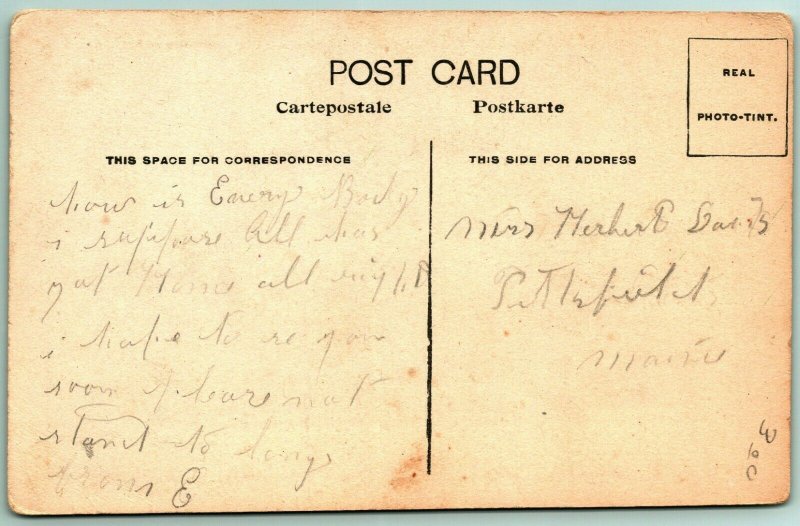 POST CARD
Cartepostale Postkarte
REAL
PHOTO-TINT.
THIS SPACE FOR CORRESPONDENCE
THIS SIDE FOR ADDRESS
how is Every Body
i suppose all has
got Home all right
i hope to se you
soon
not
stand to long
from E
Mrs Herbert Davis
Pittsfield
Maine